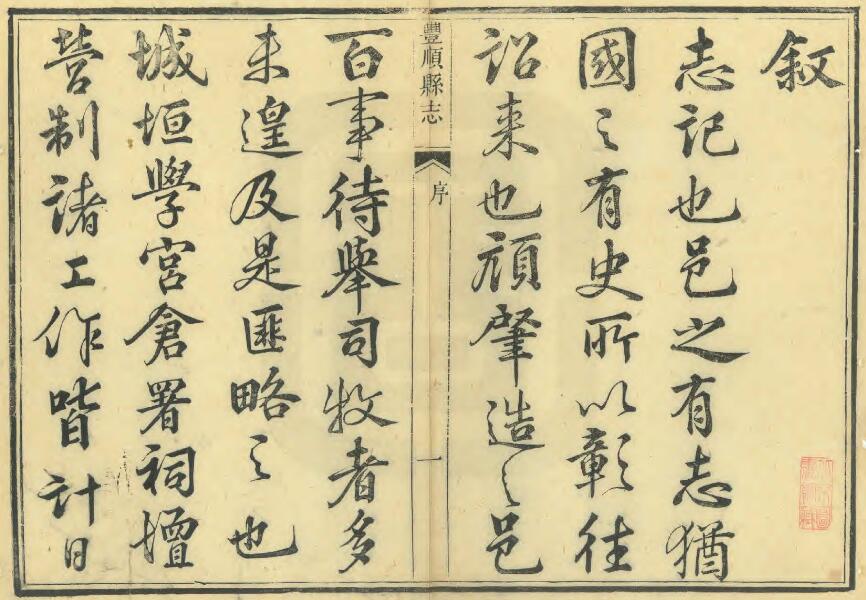 叙
志記也邑之有志猶
國之有史所以彰往
詔来也頋肇造之邑
豐順縣志
序
一
百事待舉司牧者多
未遑及是匪略之也
城垣學宮倉署祠壇
营制諸工作皆計日